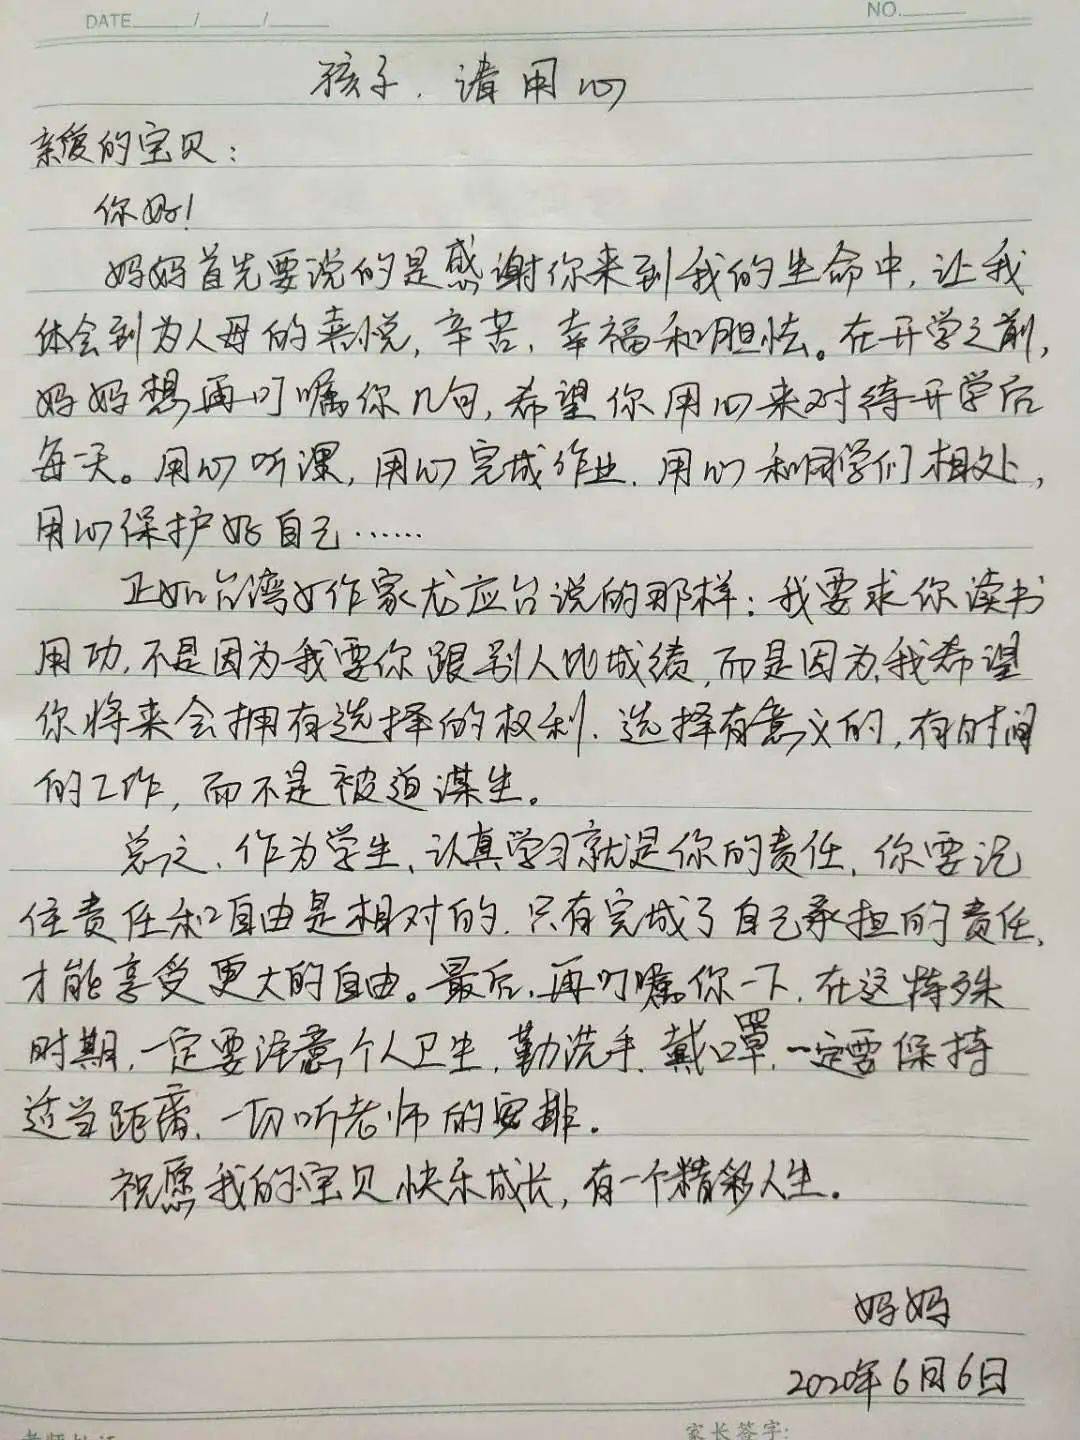 DATE / / NO.
孩子，请用心
亲爱的宝贝：
你好！
妈妈首先要说的是感谢你来到我的生命中，让我
体会到为人母的喜悦，辛苦、幸福和胆怯。在开学之前，
妈妈想再叮嘱你几句，希望你用心来对待开学后
每一天。用心听课，用心完成作业，用心和同学们相处，
用心保护好自己……
正如台湾女作家龙应台说的那样：我要求你读书
用功，不是因为我要你跟别人比成绩，而是因为，我希望
你将来会拥有选择的权利，选择有意义的，有时间
的工作，而不是被迫谋生。
总之，作为学生，认真学习就是你的责任，你要记
住责任和自由是相对的，只有完成了自己承担的责任，
才能享受更大的自由。最后，再叮嘱你一下，在这特殊
时期，一定要注意个人卫生，勤洗手，戴口罩，一定要保持
适当距离，一切听老师的安排。
祝愿我的宝贝快乐成长，有一个精彩人生。
妈妈
2020年6月6日
家长签字: